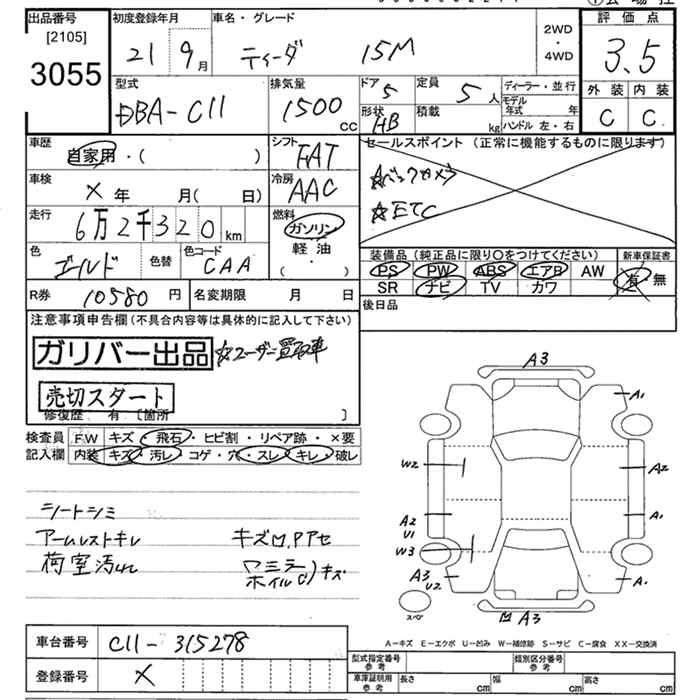 出品番号
[2105]
3055
初度登録年月
21 9月
車名・グレード
ティーダ 15M
2WD
・
4WD
評価点
3.5
外装 内装
C C
型式
DBA-C11
排気量
1500 cc
ドア
5
定員
5人
形状
HB
積載
kg
ディーラー・並行
モデル年式 年
ハンドル 左・右
車歴
自家用・( )
シフト
FAT
車検
× 年 月(日)
冷房
AAC
走行
6万2千320km
燃料
ガソリン
軽油
( ・ )
色
ゴールド
色替
色コード
CAA
R券 10580円
名変期限 月 日
セールスポイント (正常に機能するものに限ります)
☆バックカメラ
☆ETC
装備品(純正品に限り○をつけてください)
PS PW ABS エアB AW
SR ナビ TV カワ
新車保証書
有・無
後日品
注意事項申告欄(不具合内容等は具体的に記入して下さい)
ガリバー出品
☆ユーザー買取車
売切スタート
修復歴: 有 [箇所 ]
検査員記入欄
FW キズ・飛石・ヒビ割・リペア跡・×要
内装 キズ・汚レ・コゲ・穴・スレ・キレ・破レ
シートシミ
アームレストキレ
キズロ,Pアセ
荷室汚れ
ミラー
ホイルC)キズ
A3
A1
W2
A2
A2
U1
A1
W3
A3
U2
A1
スペア
A3
A-キズ E-エクボ U-凹み W-補修跡 S-サビ C-腐食 XX-交換済
車台番号 C11-315278
登録番号 ×
型式指定番号
参考
類別区分番号
参考
車庫証明用
参考
長さ cm
幅 cm
高さ cm